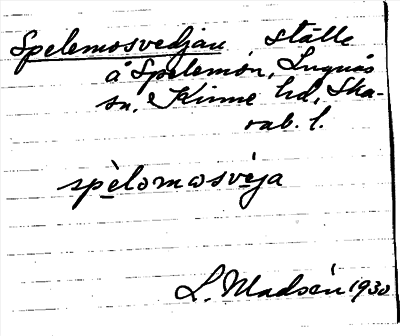 Spelemosvedjan ställe
å Spelemon, Lugnås
sn. Kinne hd, Ska-
rab. l.
spèlomωsvèja
L. Madsén 1930